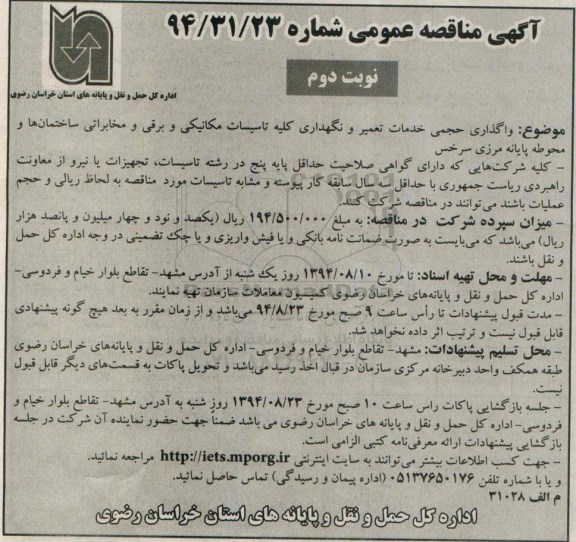 آگهی مناقصه عمومی شماره ۹۴/۳۱/۲۳
نوبت دوم
اداره کل حمل و نقل و پایانه های استان خراسان رضوی
موضوع: واگذاری حجمی خدمات تعمیر و نگهداری کلیه تاسیسات مکانیکی و برقی و مخابراتی ساختمان‌ها و
محوطه پایانه مرزی سرخس
- کلیه شرکت‌هایی که دارای گواهی صلاحیت حداقل پایه پنج در رشته تاسیسات، تجهیزات یا نیرو از معاونت
راهبردی ریاست جمهوری با حداقل سه سال سابقه کار پیوسته و مشابه تاسیسات مورد مناقصه به لحاظ ریالی و حجم
عملیات باشند می‌توانند در مناقصه شرکت کنند.
- میزان سپرده شرکت در مناقصه: به مبلغ ۱۹۴/۵۰۰/۰۰۰ ریال (یکصد و نود و چهار میلیون و پانصد هزار
ریال) می‌باشد که می‌بایست به صورت ضمانت نامه بانکی و یا فیش واریزی و یا چک تضمینی در وجه اداره کل حمل
و نقل باشند.
- مهلت و محل تهیه اسناد: تا مورخ ۱۳۹۴/۰۸/۱۰ روز یک شنبه از آدرس مشهد- تقاطع بلوار خیام و فردوسی-
اداره کل حمل و نقل و پایانه‌های خراسان رضوی کمیسیون معاملات سازمان تهیه نمایند.
- مدت قبول پیشنهادات تا رأس ساعت ۹ صبح مورخ ۹۴/۸/۲۳ می‌باشد و از زمان مقرر به بعد هیچ گونه پیشنهادی
قابل قبول نیست و ترتیب اثر داده نخواهد شد.
- محل تسلیم پیشنهادات: مشهد- تقاطع بلوار خیام و فردوسی- اداره کل حمل و نقل و پایانه‌های خراسان رضوی
طبقه همکف واحد دبیرخانه مرکزی سازمان در قبال اخذ رسید می‌باشد و تحویل پاکات به قسمت‌های دیگر قابل قبول
نیست.
- جلسه بازگشایی پاکات راس ساعت ۱۰ صبح مورخ ۱۳۹۴/۰۸/۲۳ روز شنبه به آدرس مشهد- تقاطع بلوار خیام و
فردوسی- اداره کل حمل و نقل و پایانه های خراسان رضوی می باشد ضمناً جهت حضور نماینده آن شرکت در جلسه
بازگشایی پیشنهادات ارائه معرفی‌نامه کتبی الزامی است.
- جهت کسب اطلاعات بیشتر می‌توانند به سایت اینترنتی http://iets.mporg.ir مراجعه نمائید.
و یا با شماره تلفن ۰۵۱۳۷۶۵۰۱۷۶ (اداره پیمان و رسیدگی) تماس حاصل نمائید.
م الف ۳۱۰۲۸
اداره کل حمل و نقل و پایانه های استان خراسان رضوی